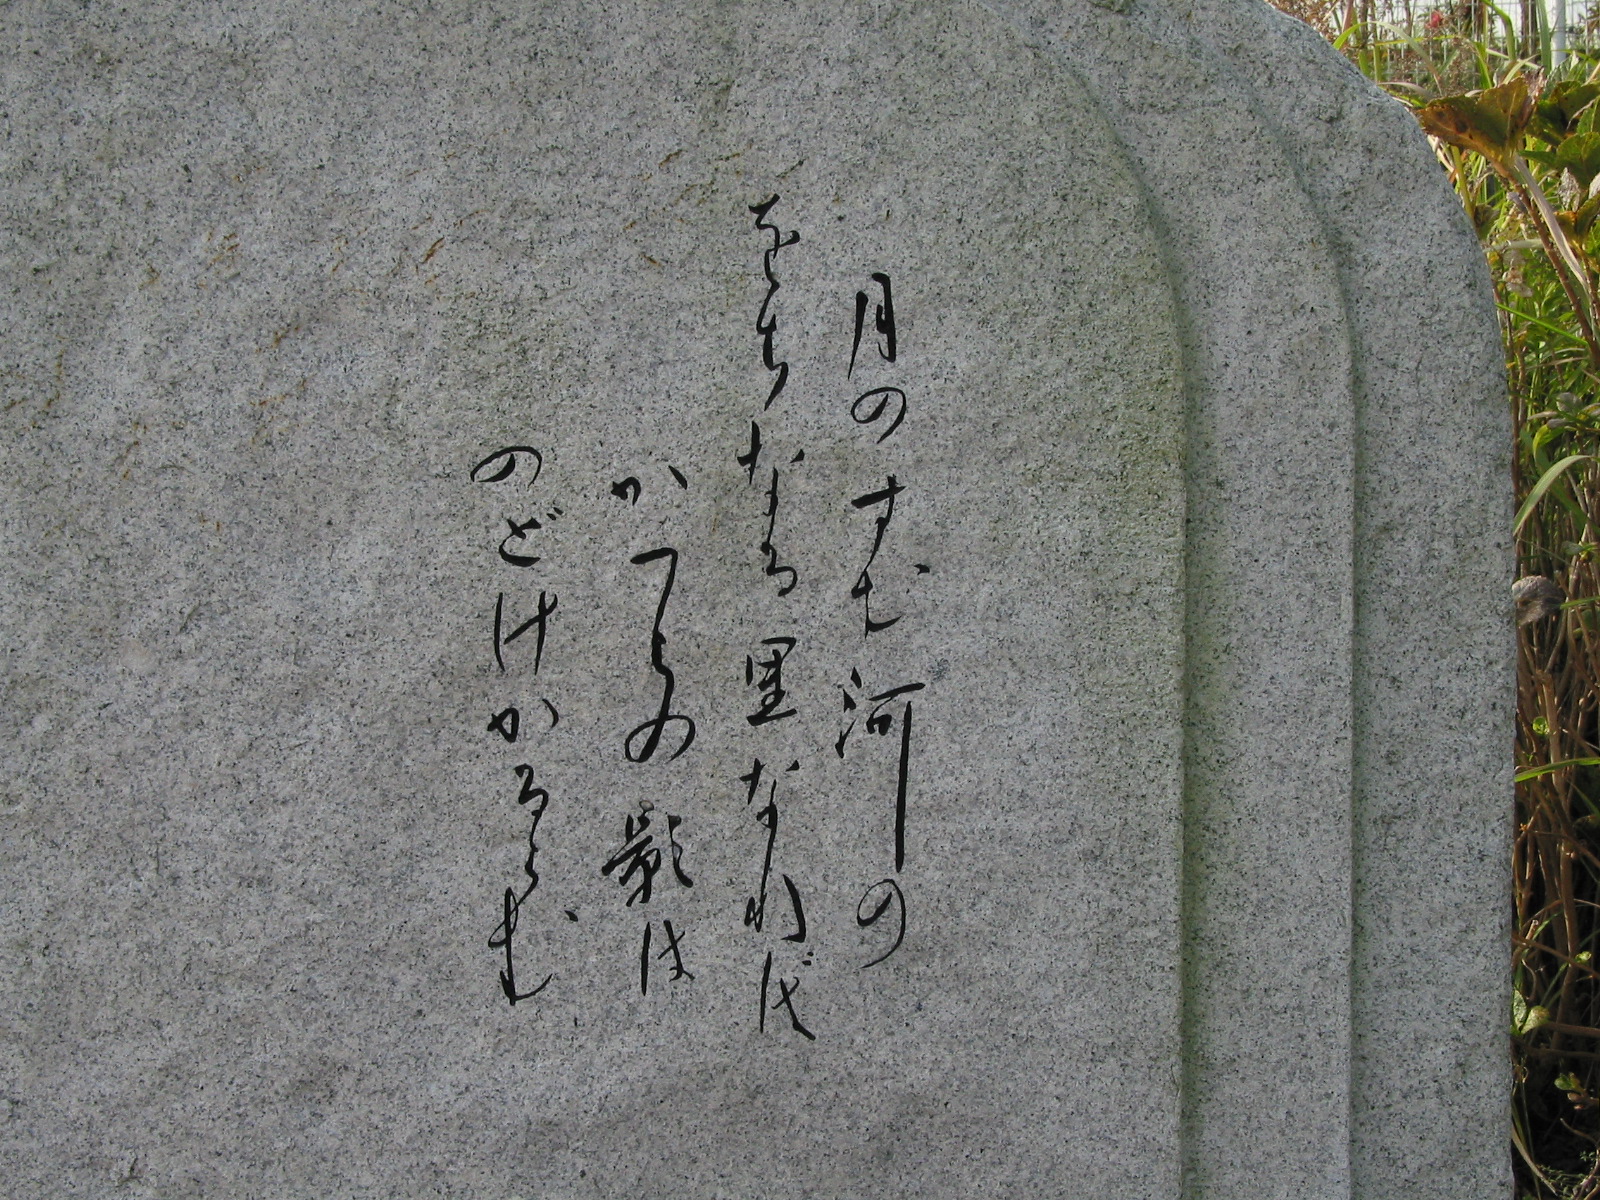 月のすむ河の
をちなる里なれば
かつらの影は
のどけかるらむ